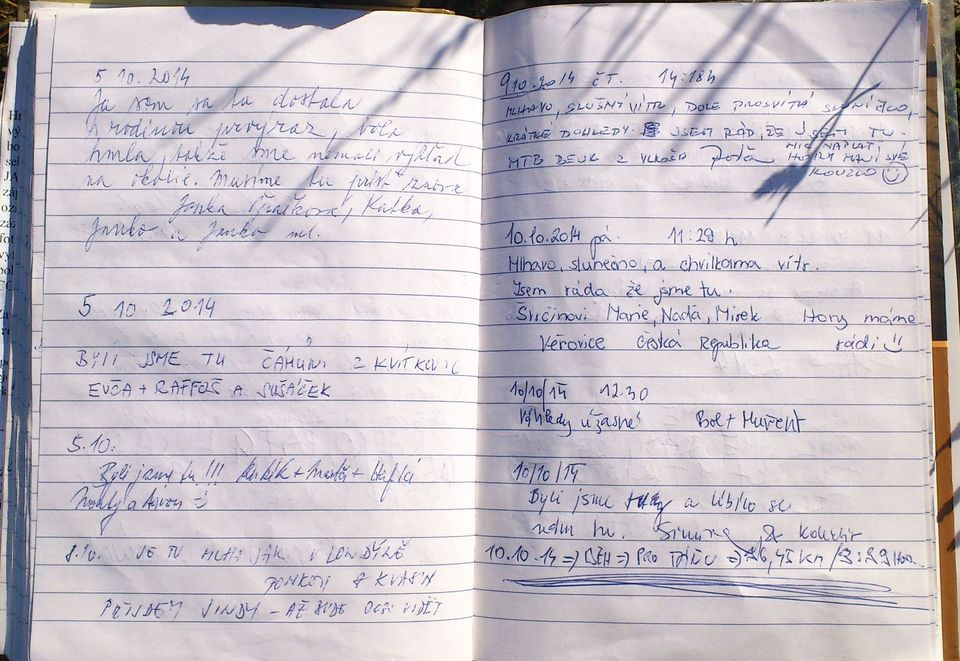 5 10. 2014
Ja sem sa tu dostala
s rodinou prvýraz, bola
hmla, takže sme nemali výhľad
na okolie. Musíme tu prísť znova
Janka, Katka,
Janko a Janka ml.
5 10 2014
BYLI JSME TU ČÁHUNI Z KVÍTKOVIC
EVČA + RAFFOŠ A SUŠÁČEK
5.10.
Byli jsme tu!!! + +
a
8.10. JE TU MLHA JAK V LONDÝNĚ
& KVASN
PŘÍNDEM JINDY - AŽ BUDE VIDĚT
9 10.2014 ČT. 14:18h
MLHAVO, SLUŠNÝ VÍTR, DOLE PROSVÍTÁ SLUNÍČKO,
KRÁTKÉ DOHLEDY. JSEM RÁD, ŽE JSEM TU.
MTB BEJK Z NIC NAPLAT!
HORY MAJÍ SVÉ
KOUZLO ☺
10.10.2014 pá. 11:28 h
Mlhavo, slunečno, a chvilkama vítr.
Jsem ráda že jsme tu.
Srčinovi Marie, Naďa, Mirek Hory máme
Veřovice Česká Republika rádi
10/10/14 12.30
Výhledy úžasné Bol +
10/10/14
Byli jsme tady a líbilo se
nám tu. &
10.10.14 => BĚH => PRO => 16,45 KM / 3:29